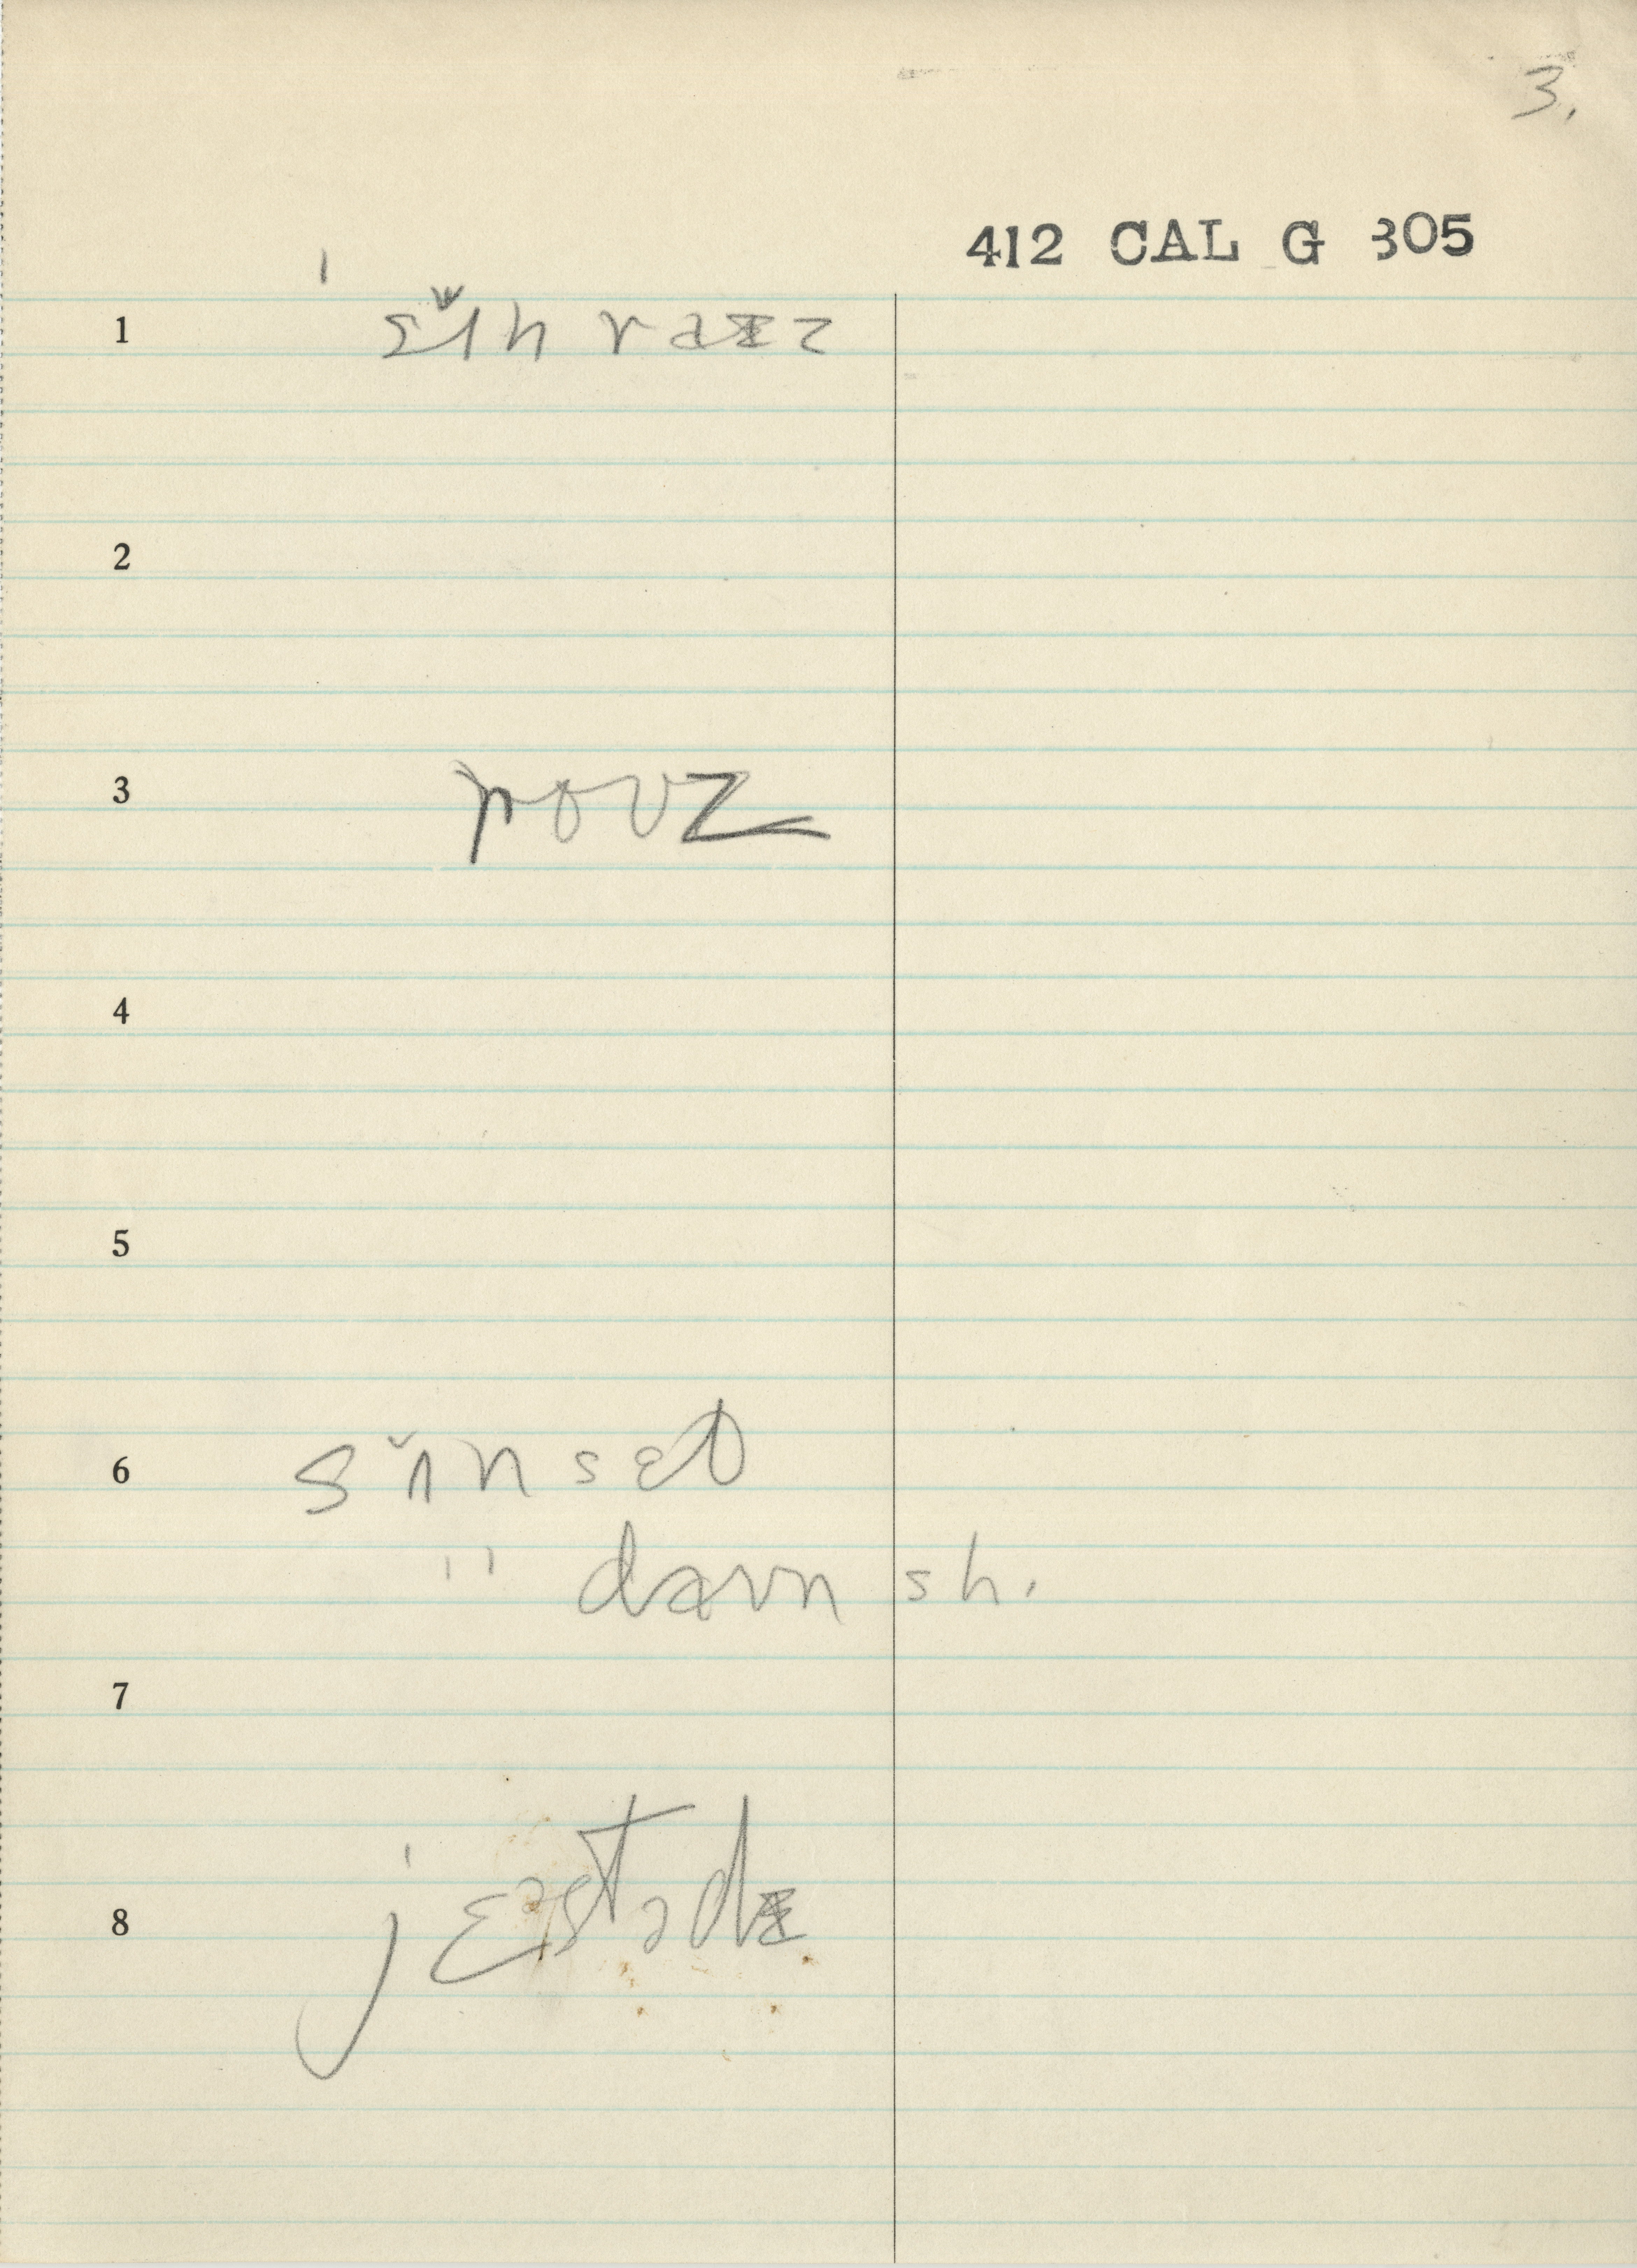 3.
412 CAL G 305
1 ˈsʌ̌n raɪz
2
3 rouz
4
5
6 sʌ̌nset
" davn sh.
7
8 ˈjɛəstədɪ